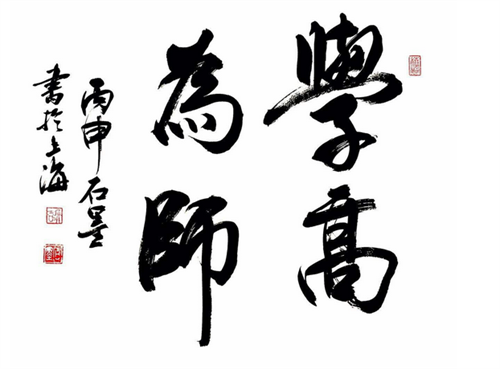 學高
為師
丙申石墨
書於上海